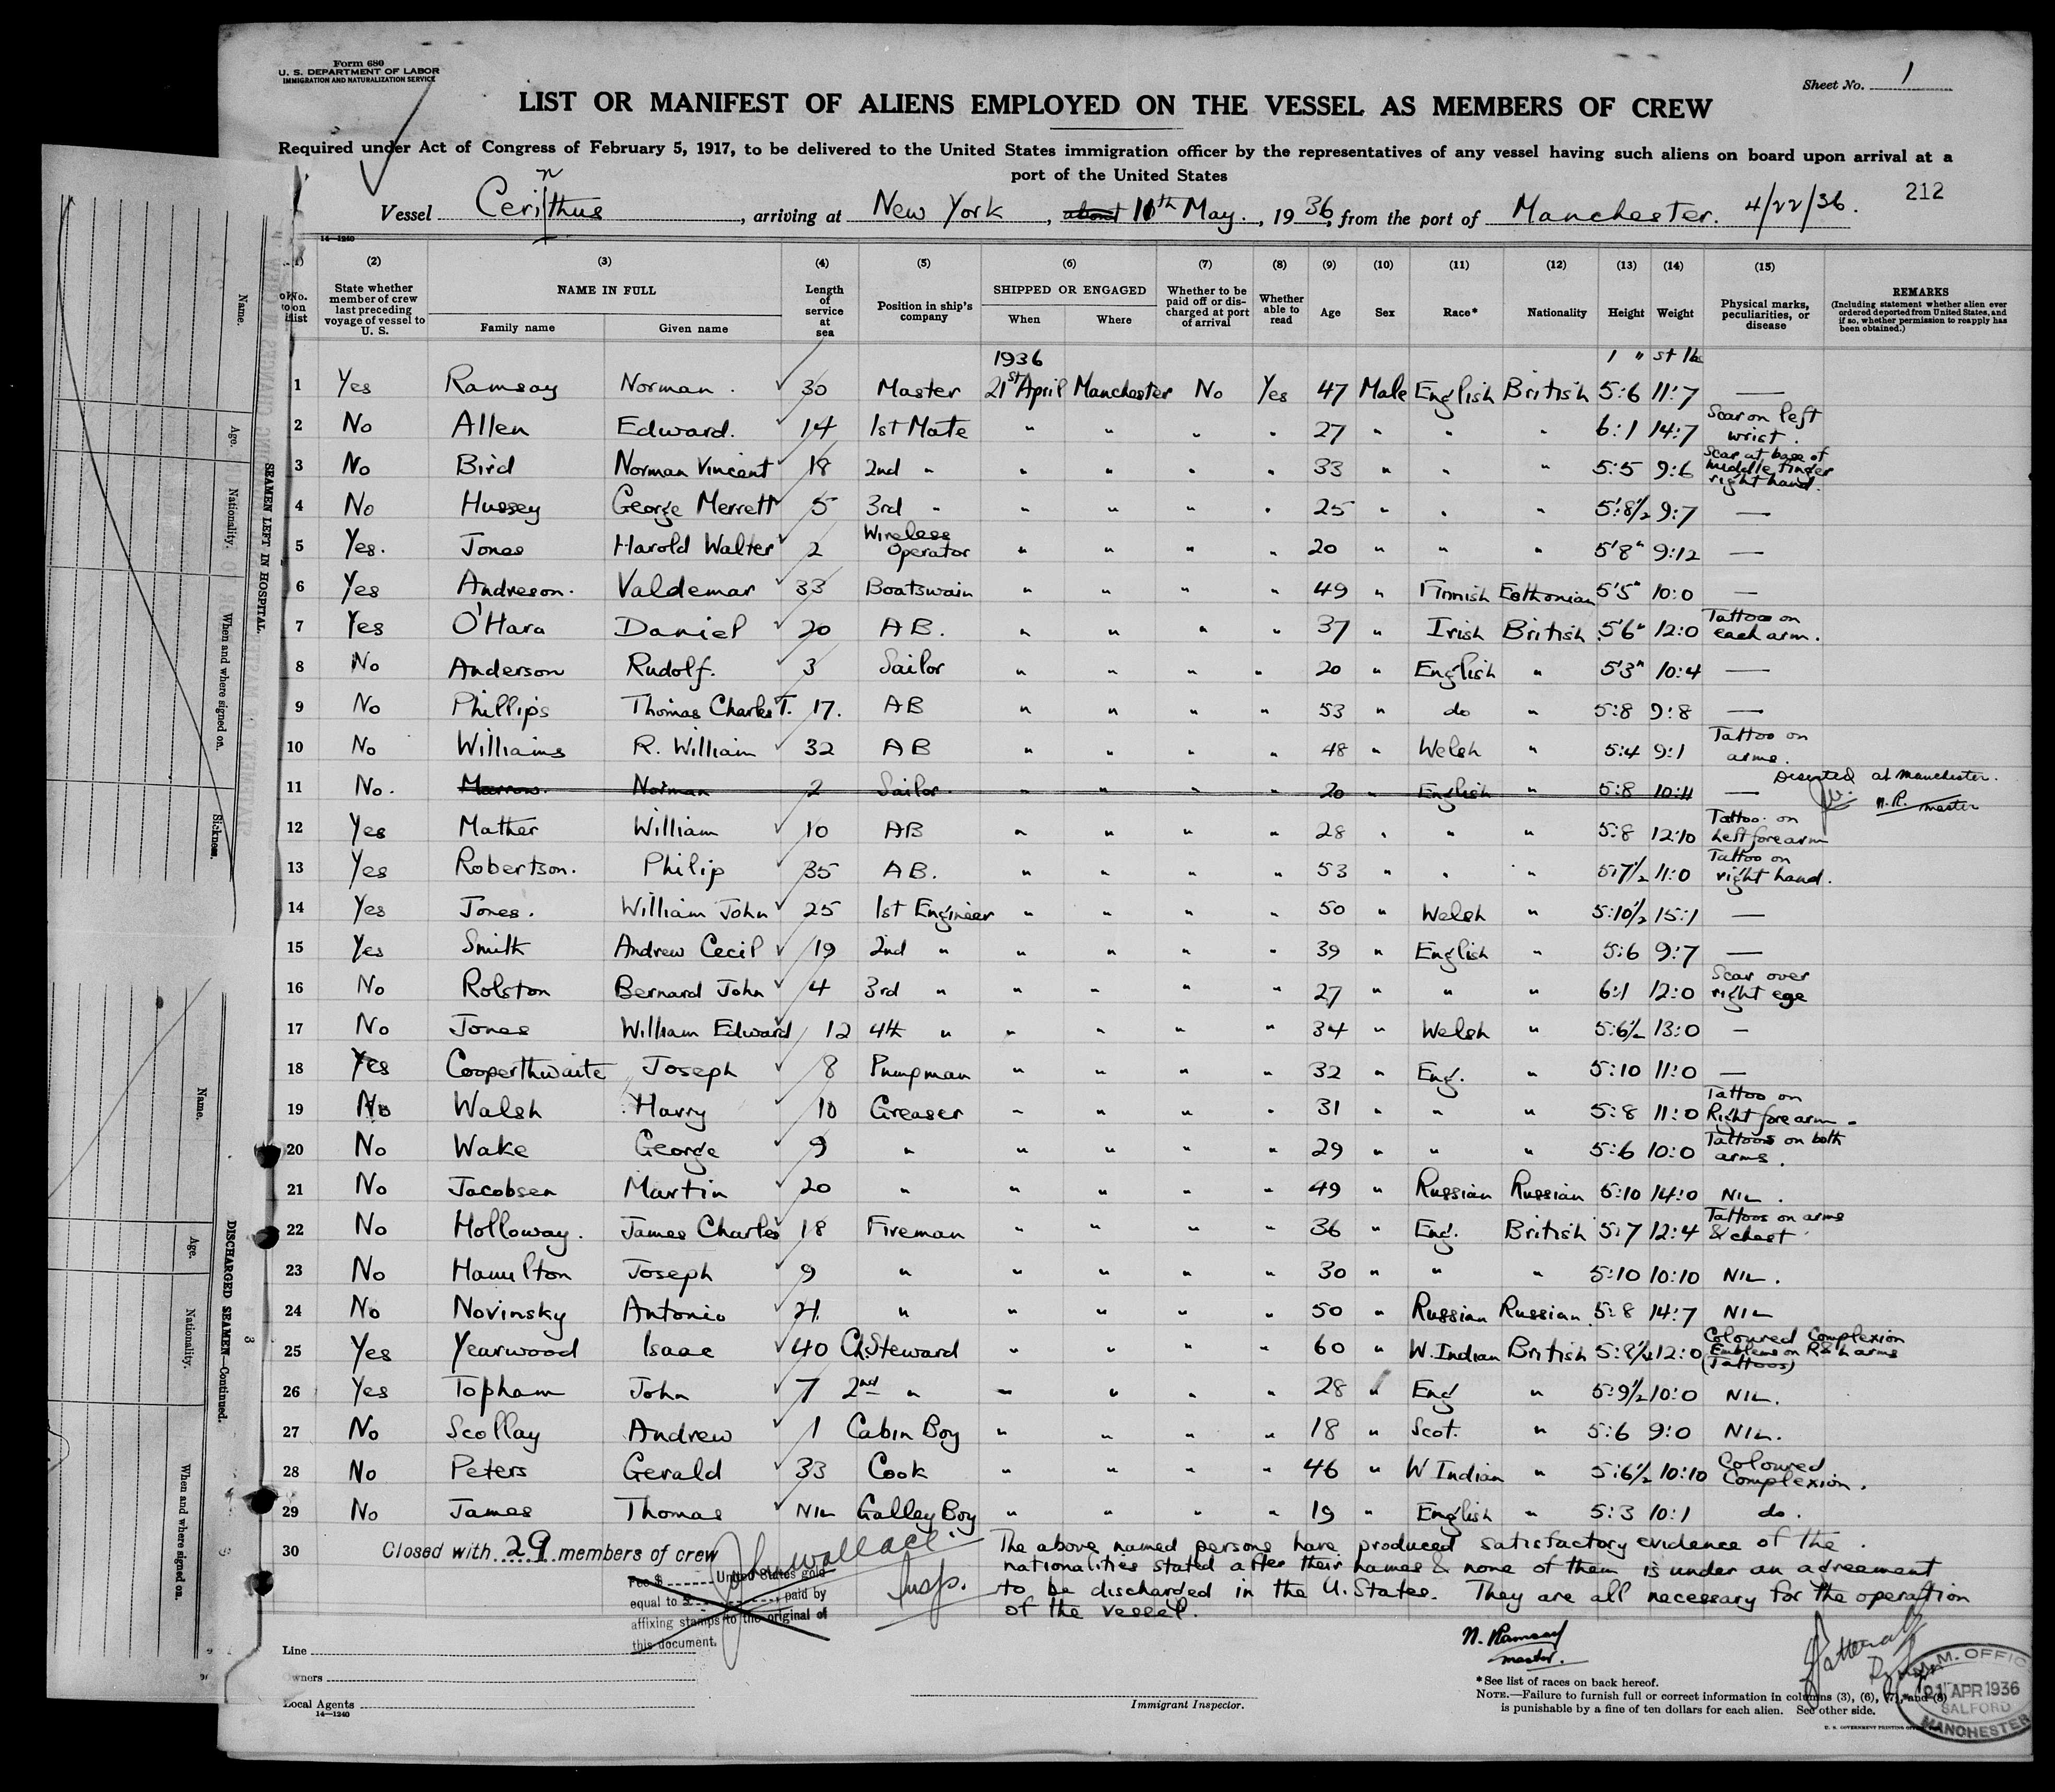 Form 680
U. S. DEPARTMENT OF LABOR
IMMIGRATION AND NATURALIZATION SERVICE
Sheet No. 1
LIST OR MANIFEST OF ALIENS EMPLOYED ON THE VESSEL AS MEMBERS OF CREW
Required under Act of Congress of February 5, 1917, to be delivered to the United States immigration officer by the representatives of any vessel having such aliens on board upon arrival at a
port of the United States
212
Vessel Cerinthus, arriving at New York, about 10th May., 1936, from the port of Manchester. 4/22/36.
14—1240
(2) (3) (4) (5) (6) (7) (8) (9) (10) (11) (12) (13) (14) (15)
State whether member of crew last preceding voyage of vessel to U. S.
NAME IN FULL
Family name Given name
Length of service at sea
Position in ship's company
SHIPPED OR ENGAGED
When Where
Whether to be paid off or discharged at port of arrival
Whether able to read
Age Sex Race* Nationality Height Weight
Physical marks, peculiarities, or disease
REMARKS
(Including statement whether alien ever ordered deported from United States, and if so, whether permission to reapply has been obtained.)
1936 ' " st lb
1 Yes Ramsay Norman. 30 Master 21st April Manchester No Yes 47 Male English British 5:6 11:7 —
2 No Allen Edward. 14 1st Mate " " " " 27 " " " 6:1 14:7 Scar on left wrist.
3 No Bird Norman Vincent 18 2nd " " " " " 33 " " " 5:5 9:6 Scar at base of middle finger right hand.
4 No Hussey George Merrett 5 3rd " " " " " 25 " " " 5:8½ 9:7 —
5 Yes. Jones Harold Walter 2 Wireless Operator " " " " 20 " " " 5'8" 9:12 —
6 Yes Andreson. Valdemar 33 Boatswain " " " " 49 " Finnish Esthonian 5'5" 10:0 —
7 Yes O'Hara Daniel 20 A B. " " " " 37 " Irish British 5'6" 12:0 Tattoos on each arm.
8 No Anderson Rudolf. 3 Sailor " " " " 20 " English " 5'3" 10:4 —
9 No Phillips Thomas Charles T. 17. A B " " " " 53 " do " 5:8 9:8 —
10 No Williams R. William 32 A B " " " " 48 " Welsh " 5:4 9:1 Tattoo on arms.
11 No. Marrow. Norman 2 Sailor. " " " 20 " English " 5:8 10:11 — Deserted at Manchester. N.R. master
12 Yes Mather William 10 AB " " " " 28 " " " 5:8 12:10 Tattoo on left forearm
13 Yes Robertson. Philip 35 A B. " " " " 53 " " " 5:7½ 11:0 Tattoo on right hand.
14 Yes Jones. William John 25 1st Engineer " " " " 50 " Welsh " 5:10½ 15:1 —
15 Yes Smith Andrew Cecil 19 2nd " " " " " 39 " English " 5:6 9:7 —
16 No Rolston Bernard John 4 3rd " " " " " 27 " " " 6:1 12:0 Scar over right eye
17 No Jones William Edward 12 4th " " " " " 34 " Welsh " 5:6½ 13:0 —
18 Yes Cooperthwaite Joseph 8 Pumpman " " " " 32 " Eng. " 5:10 11:0 —
19 No Walsh Harry 10 Greaser " " " " 31 " " " 5:8 11:0 Tattoo on Right forearm.
20 No Wake George 9 " " " " " 29 " " " 5:6 10:0 Tattoos on both arms.
21 No Jacobsen Martin 20 " " " " " 49 " Russian Russian 5:10 14:0 NIL.
22 No Holloway. James Charles 18 Fireman " " " " 36 " Eng. British 5:7 12:4 Tattoos on arms & chest
23 No Hamilton Joseph 9 " " " " " 30 " " " 5:10 10:10 NIL.
24 No Novinsky Antonio " " " " 50 " Russian Russian 5:8 14:7 NIL
25 Yes Yearwood Isaac 40 Ch. Steward " " " " 60 " W. Indian British 5:8½ 12:0 Coloured Complexion Emblems on R & L arms (Tattoos)
26 Yes Topham John 7 2nd " " " " " 28 " Eng " 5:9½ 10:0 NIL.
27 No Scollay Andrew 1 Cabin Boy " " " " 18 " Scot. " 5:6 9:0 NIL.
28 No Peters Gerald 33 Cook " " " " 46 " W Indian " 5:6½ 10:10 Coloured Complexion.
29 No James Thomas NIL Galley Boy " " " " 19 " English " 5:3 10:1 do.
30 Closed with 29 members of crew
Insp.
The above named persons have produced satisfactory evidence of the
nationalities stated after their names & none of them is under an agreement
to be discharged in the U. States. They are all necessary for the operation
of the vessel.
Fee $ United States gold
equal to paid by
affixing stamps to the original of
this document.
N. Ramsay
master.
Line
Owners
Local Agents
14—1240
Immigrant Inspector.
*See list of races on back hereof.
NOTE.—Failure to furnish full or correct information in columns (3), (6), (7), and (8)
is punishable by a fine of ten dollars for each alien. See other side.
M.M. OFFICE
21 APR 1936
SALFORD
MANCHESTER
SEAMEN LEFT IN HOSPITAL
Name. Age. Nationality. When and where signed on. Sickness.
DISCHARGED SEAMEN—Continued.
3
Name. Age. Nationality. When and where signed on.